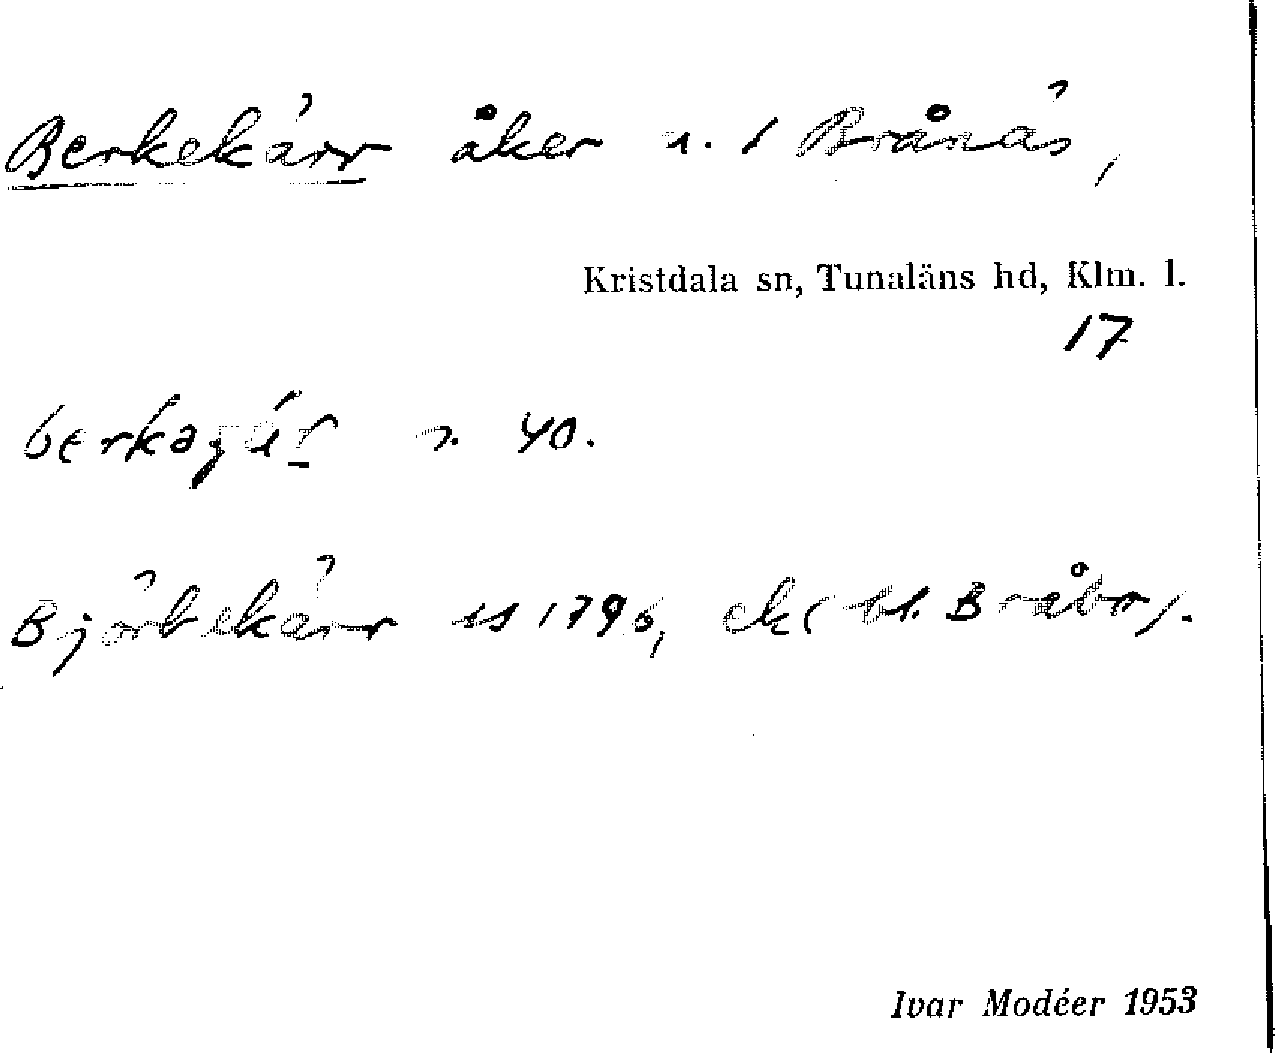 Berkekärr åker n. t Brånäs,
Kristdala sn, Tunaläns hd, Klm. l.
17
40.
Björkekärr ss 1796, ek( bl. Bråbo).
Ivar Modéer 1953